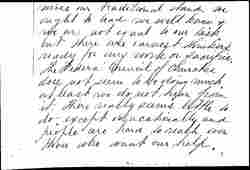 since our traditional stands we
ought to lead we well know if
we are not equal to our task
but there are earnest thinkers
ready for any work or sacrifice.
The Federal Council of Churches
does not seem to be doing much
at least we do not hear from
it. There really seems little to
do except educationally and
people are hard to reach even
those who want our help.